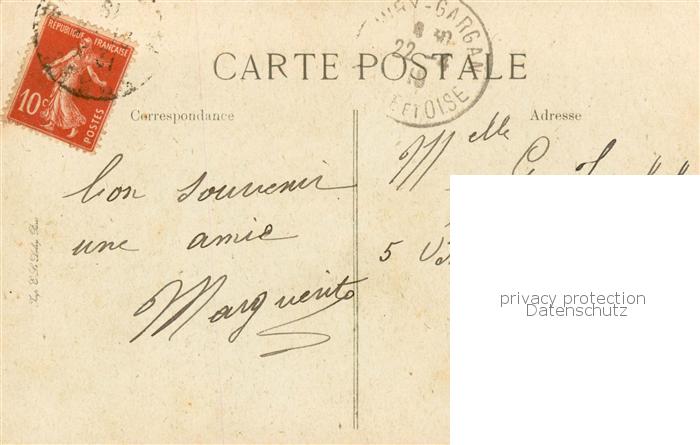 REPUBLIQUE FRANÇAISE
10c
POSTES
GARGAN
22
ET OISE
CARTE POSTALE
Correspondance
Adresse
Bon souvenir
une amie
Marguerite
Melle
5
privacy protection
Datenschutz